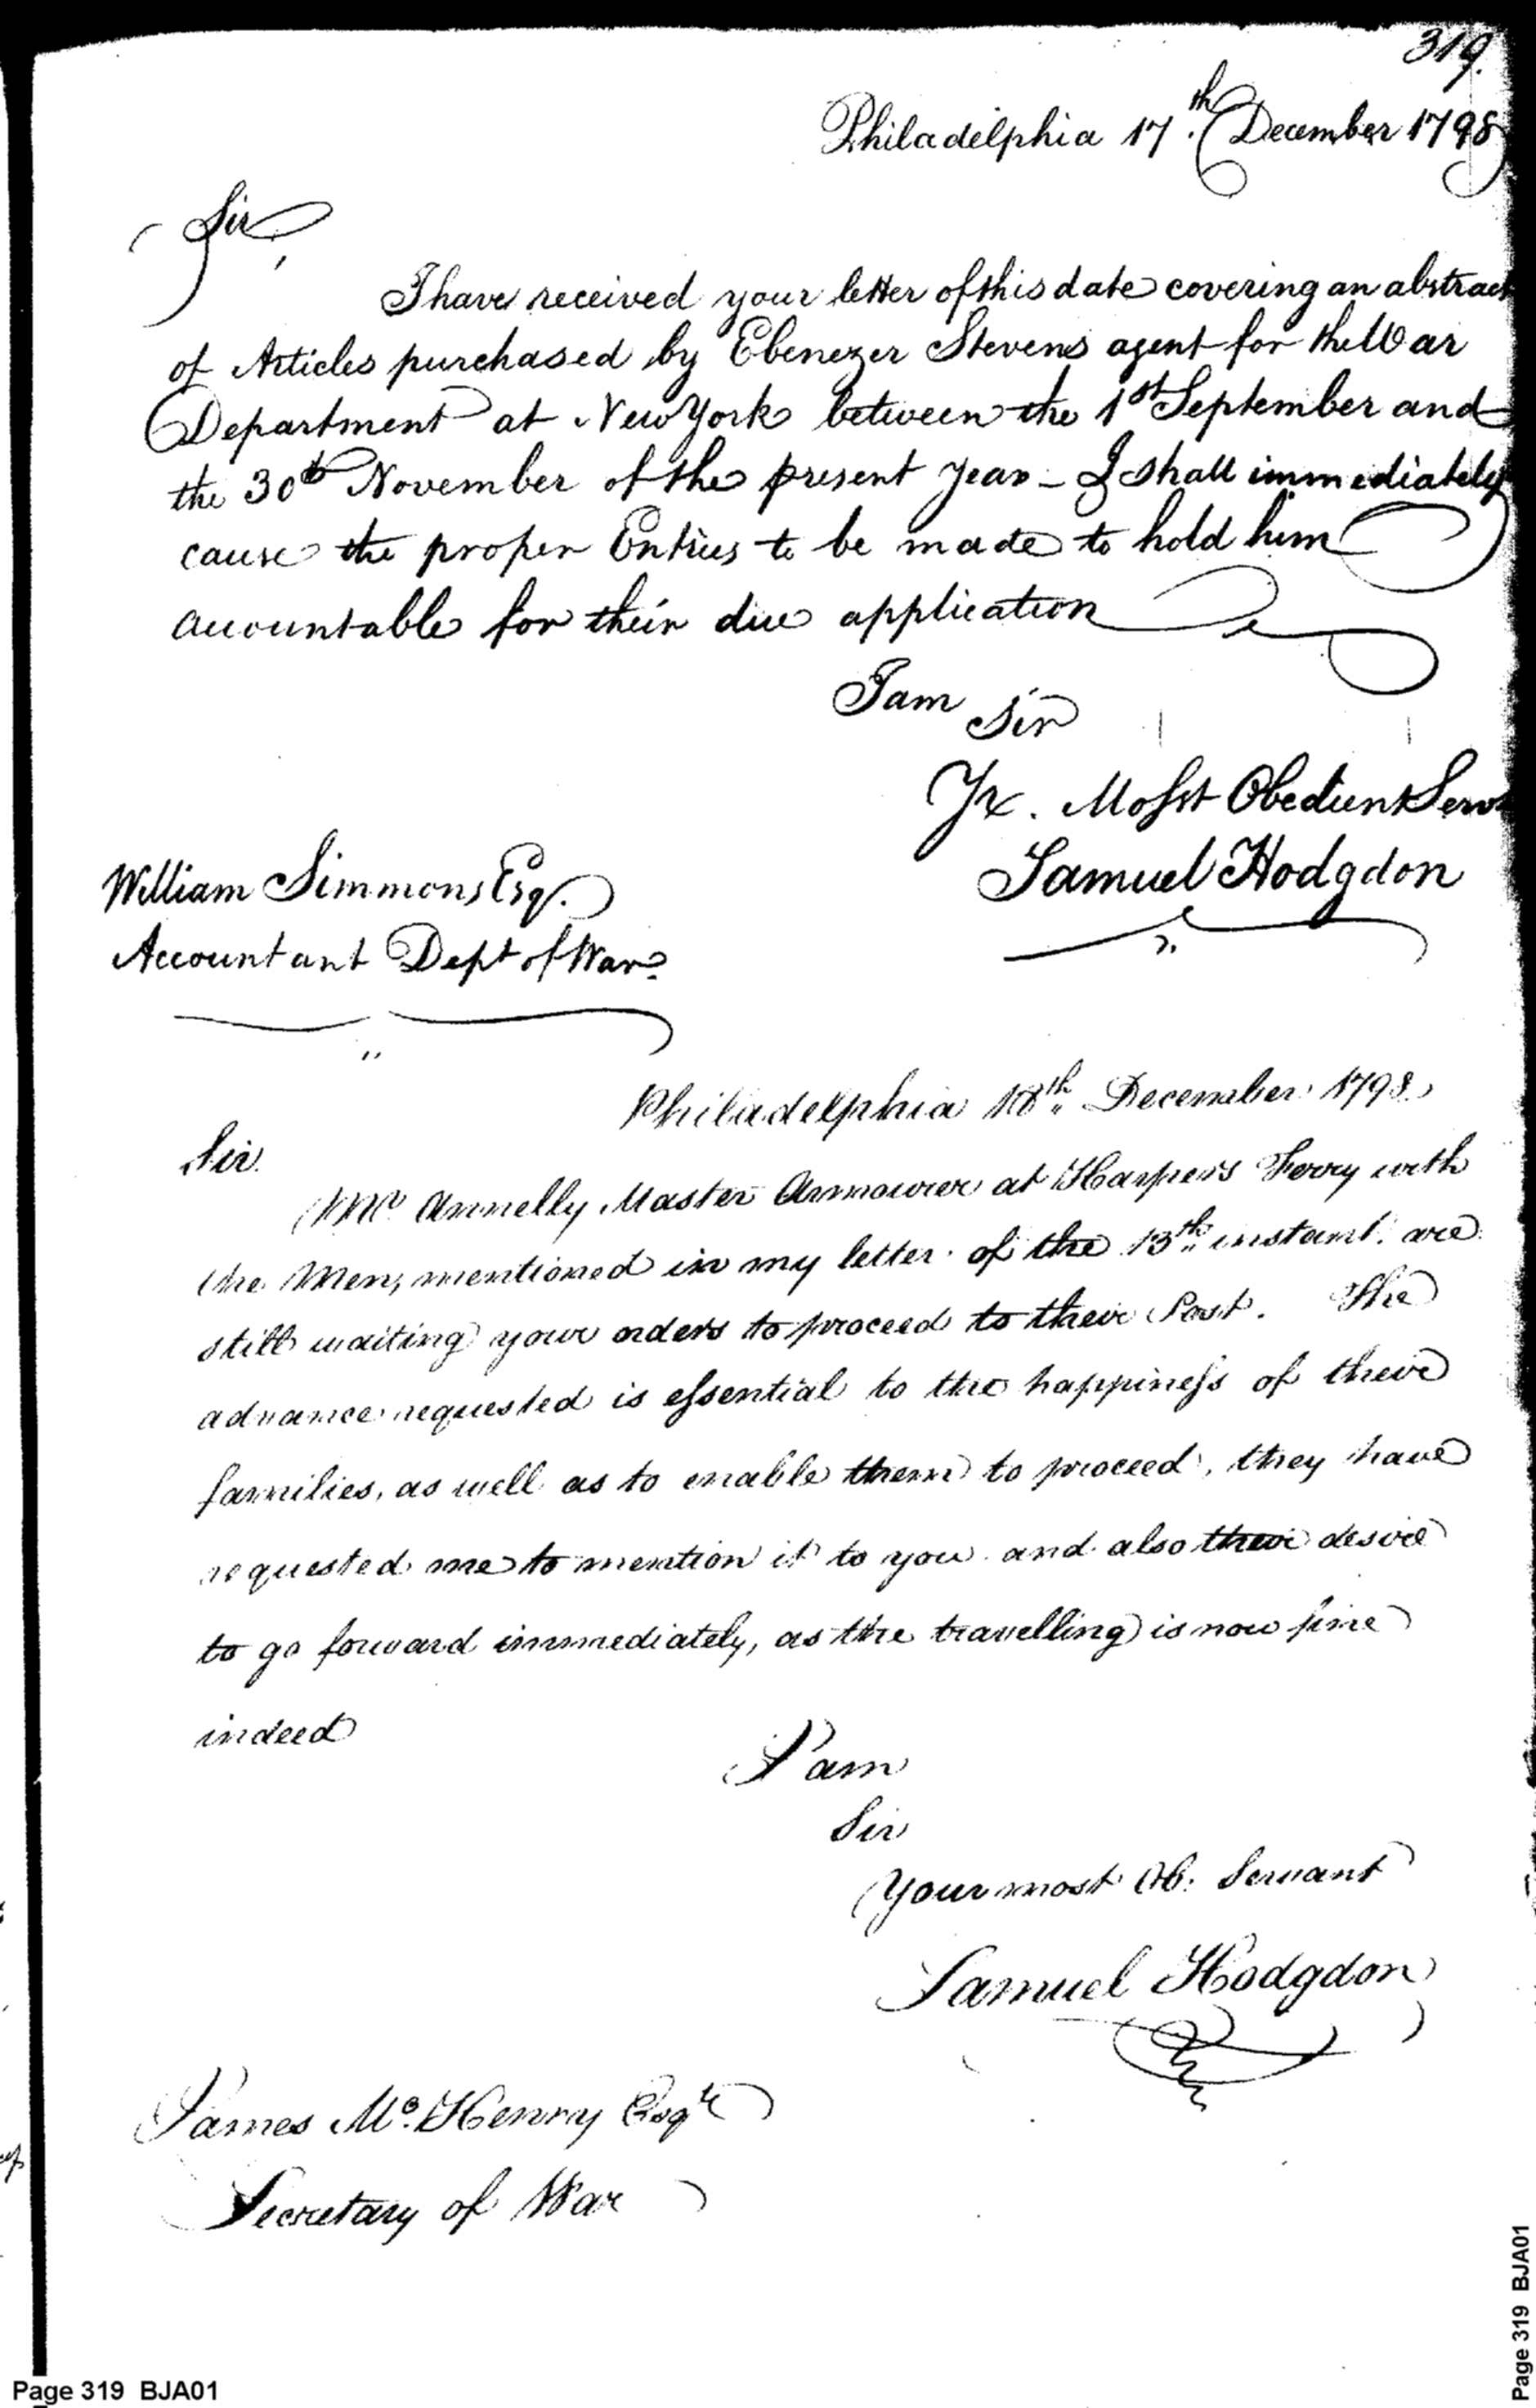 319.
Philadelphia 17.th December 1798
Sir,
I have received your letter of this date covering an abstract
of Articles purchased by Ebenezer Stevens agent for the War
Department at New York between the 1st September and
the 30th November of the present year - I shall immediately
cause the proper Entries to be made to hold him
accountable for their due application
I am Sir
Yr. Mosst Obedient Servt
Samuel Hodgdon
William Simmons Esq.
Accountant Dept of War.
Philadelphia 18th December 1798.
Sir.
Mr Annelly Master Armourer at Harpers Ferry with
the Men, mentioned in my letter of the 13th instant. are
still waiting your orders to proceed to their Post. The
advance requested is essential to the happiness of their
families, as well as to enable them to proceed, they have
requested me to mention it to you and also their desire
to go forward immediately, as the travelling is now fine
indeed
I am
Sir
Your most Ob. Servant
Samuel Hodgdon
James Mc.Henry Esqr
Secretary of War
Page 319 BJA01
Page 319 BJA01